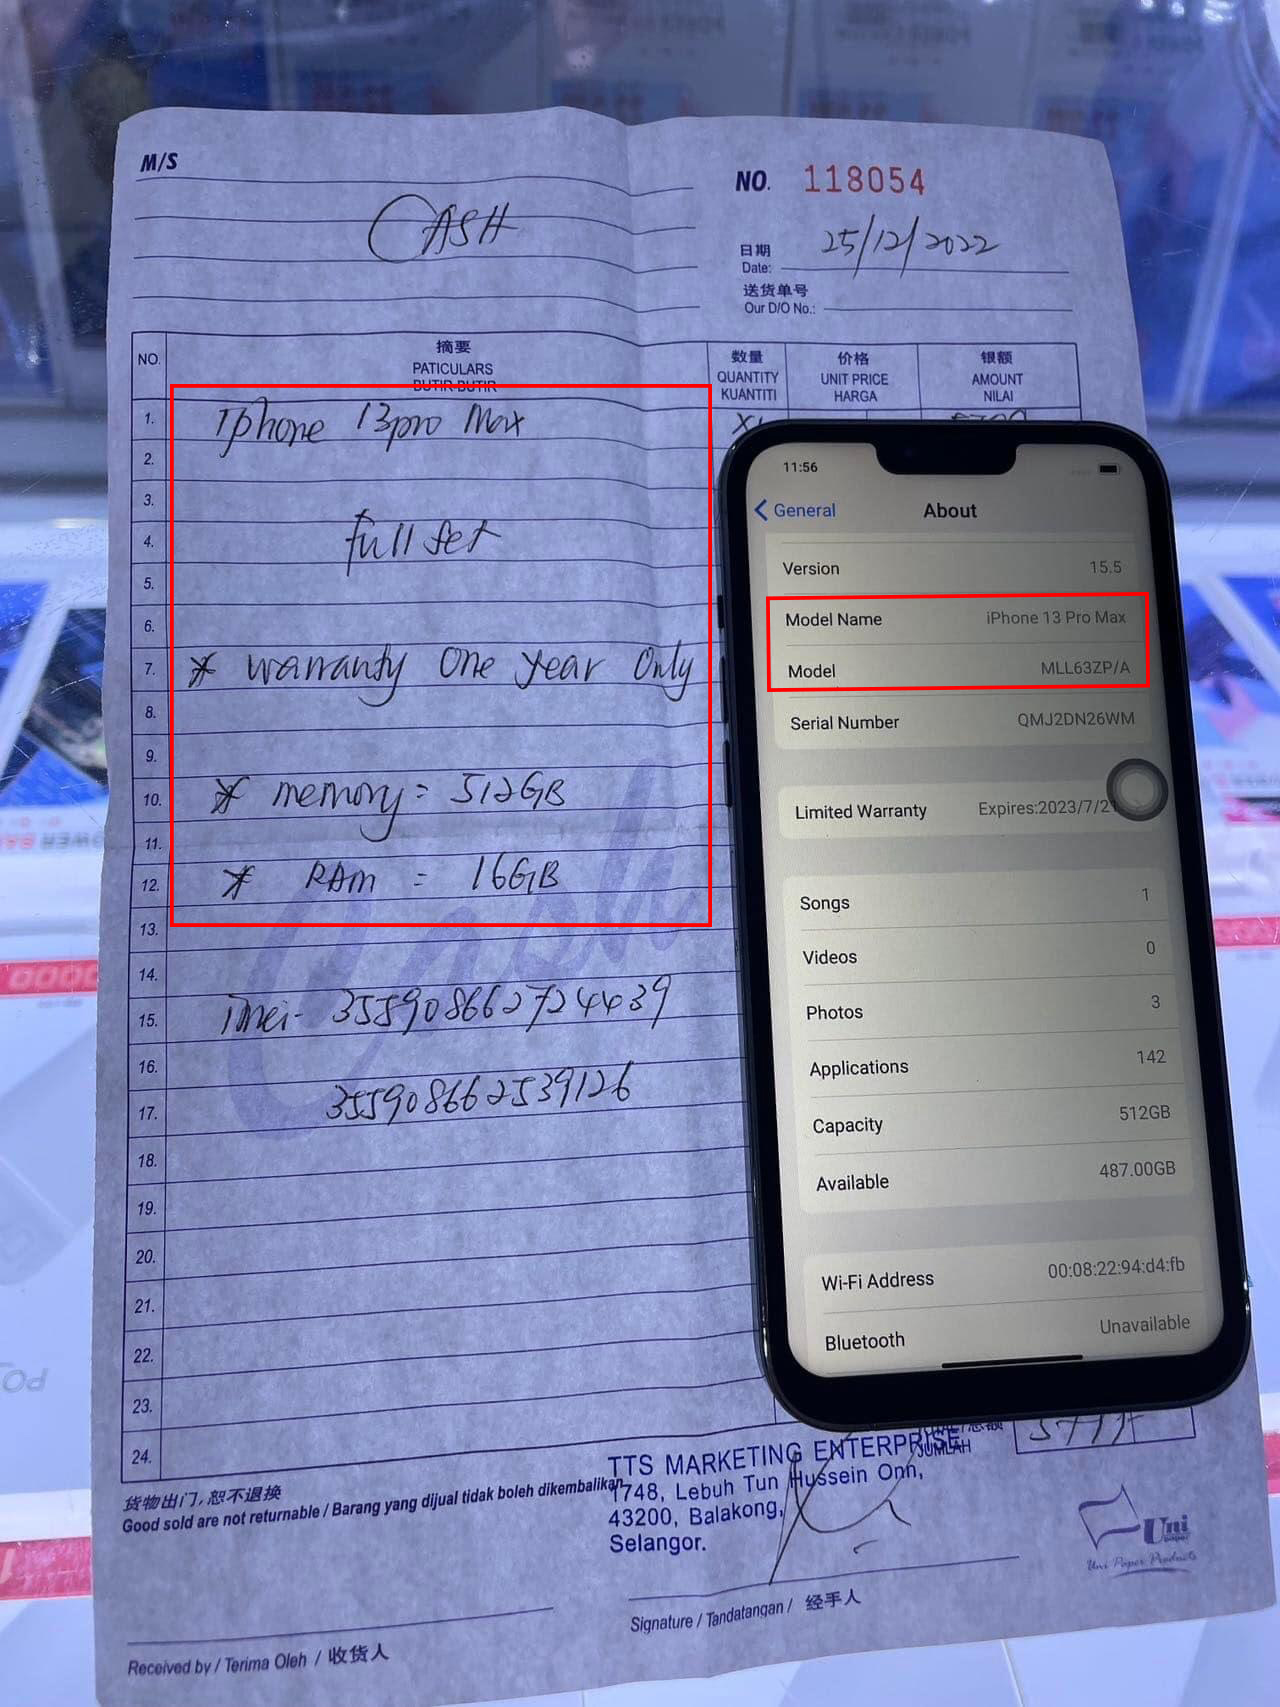 M/S
CASH
NO. 118054
日期
Date: 25/12/2022
送货单号
Our D/O No.:
NO.
摘要
PATICULARS
BUTIR-BUTIR
数量
QUANTITY
KUANTITI
价格
UNIT PRICE
HARGA
银额
AMOUNT
NILAI
1. Iphone 13pro Max X1
2.
3.
4. full set
5.
6.
7. * warranty One year Only
8.
9.
10. * memory = 512GB
11.
12. * RAM = 16GB
13.
14.
15. Imei- 355908662724439
16.
17. 355908662539126
18.
19.
20.
21.
22.
23.
24.
Cash
11:56
General
About
Version 15.5
Model Name iPhone 13 Pro Max
Model MLL63ZP/A
Serial Number QMJ2DN26WM
Limited Warranty Expires:2023/7/21
Songs 1
Videos 0
Photos 3
Applications 142
Capacity 512GB
Available 487.00GB
Wi-Fi Address 00:08:22:94:d4:fb
Bluetooth Unavailable
JUMLAH
货物出门,恕不退换
Good sold are not returnable / Barang yang dijual tidak boleh dikembalikan
TTS MARKETING ENTERPRISE
1748, Lebuh Tun Hussein Onn,
43200, Balakong,
Selangor.
Uni
Uni Paper Products
Signature / Tandatangan / 经手人
Received by / Terima Oleh / 收货人